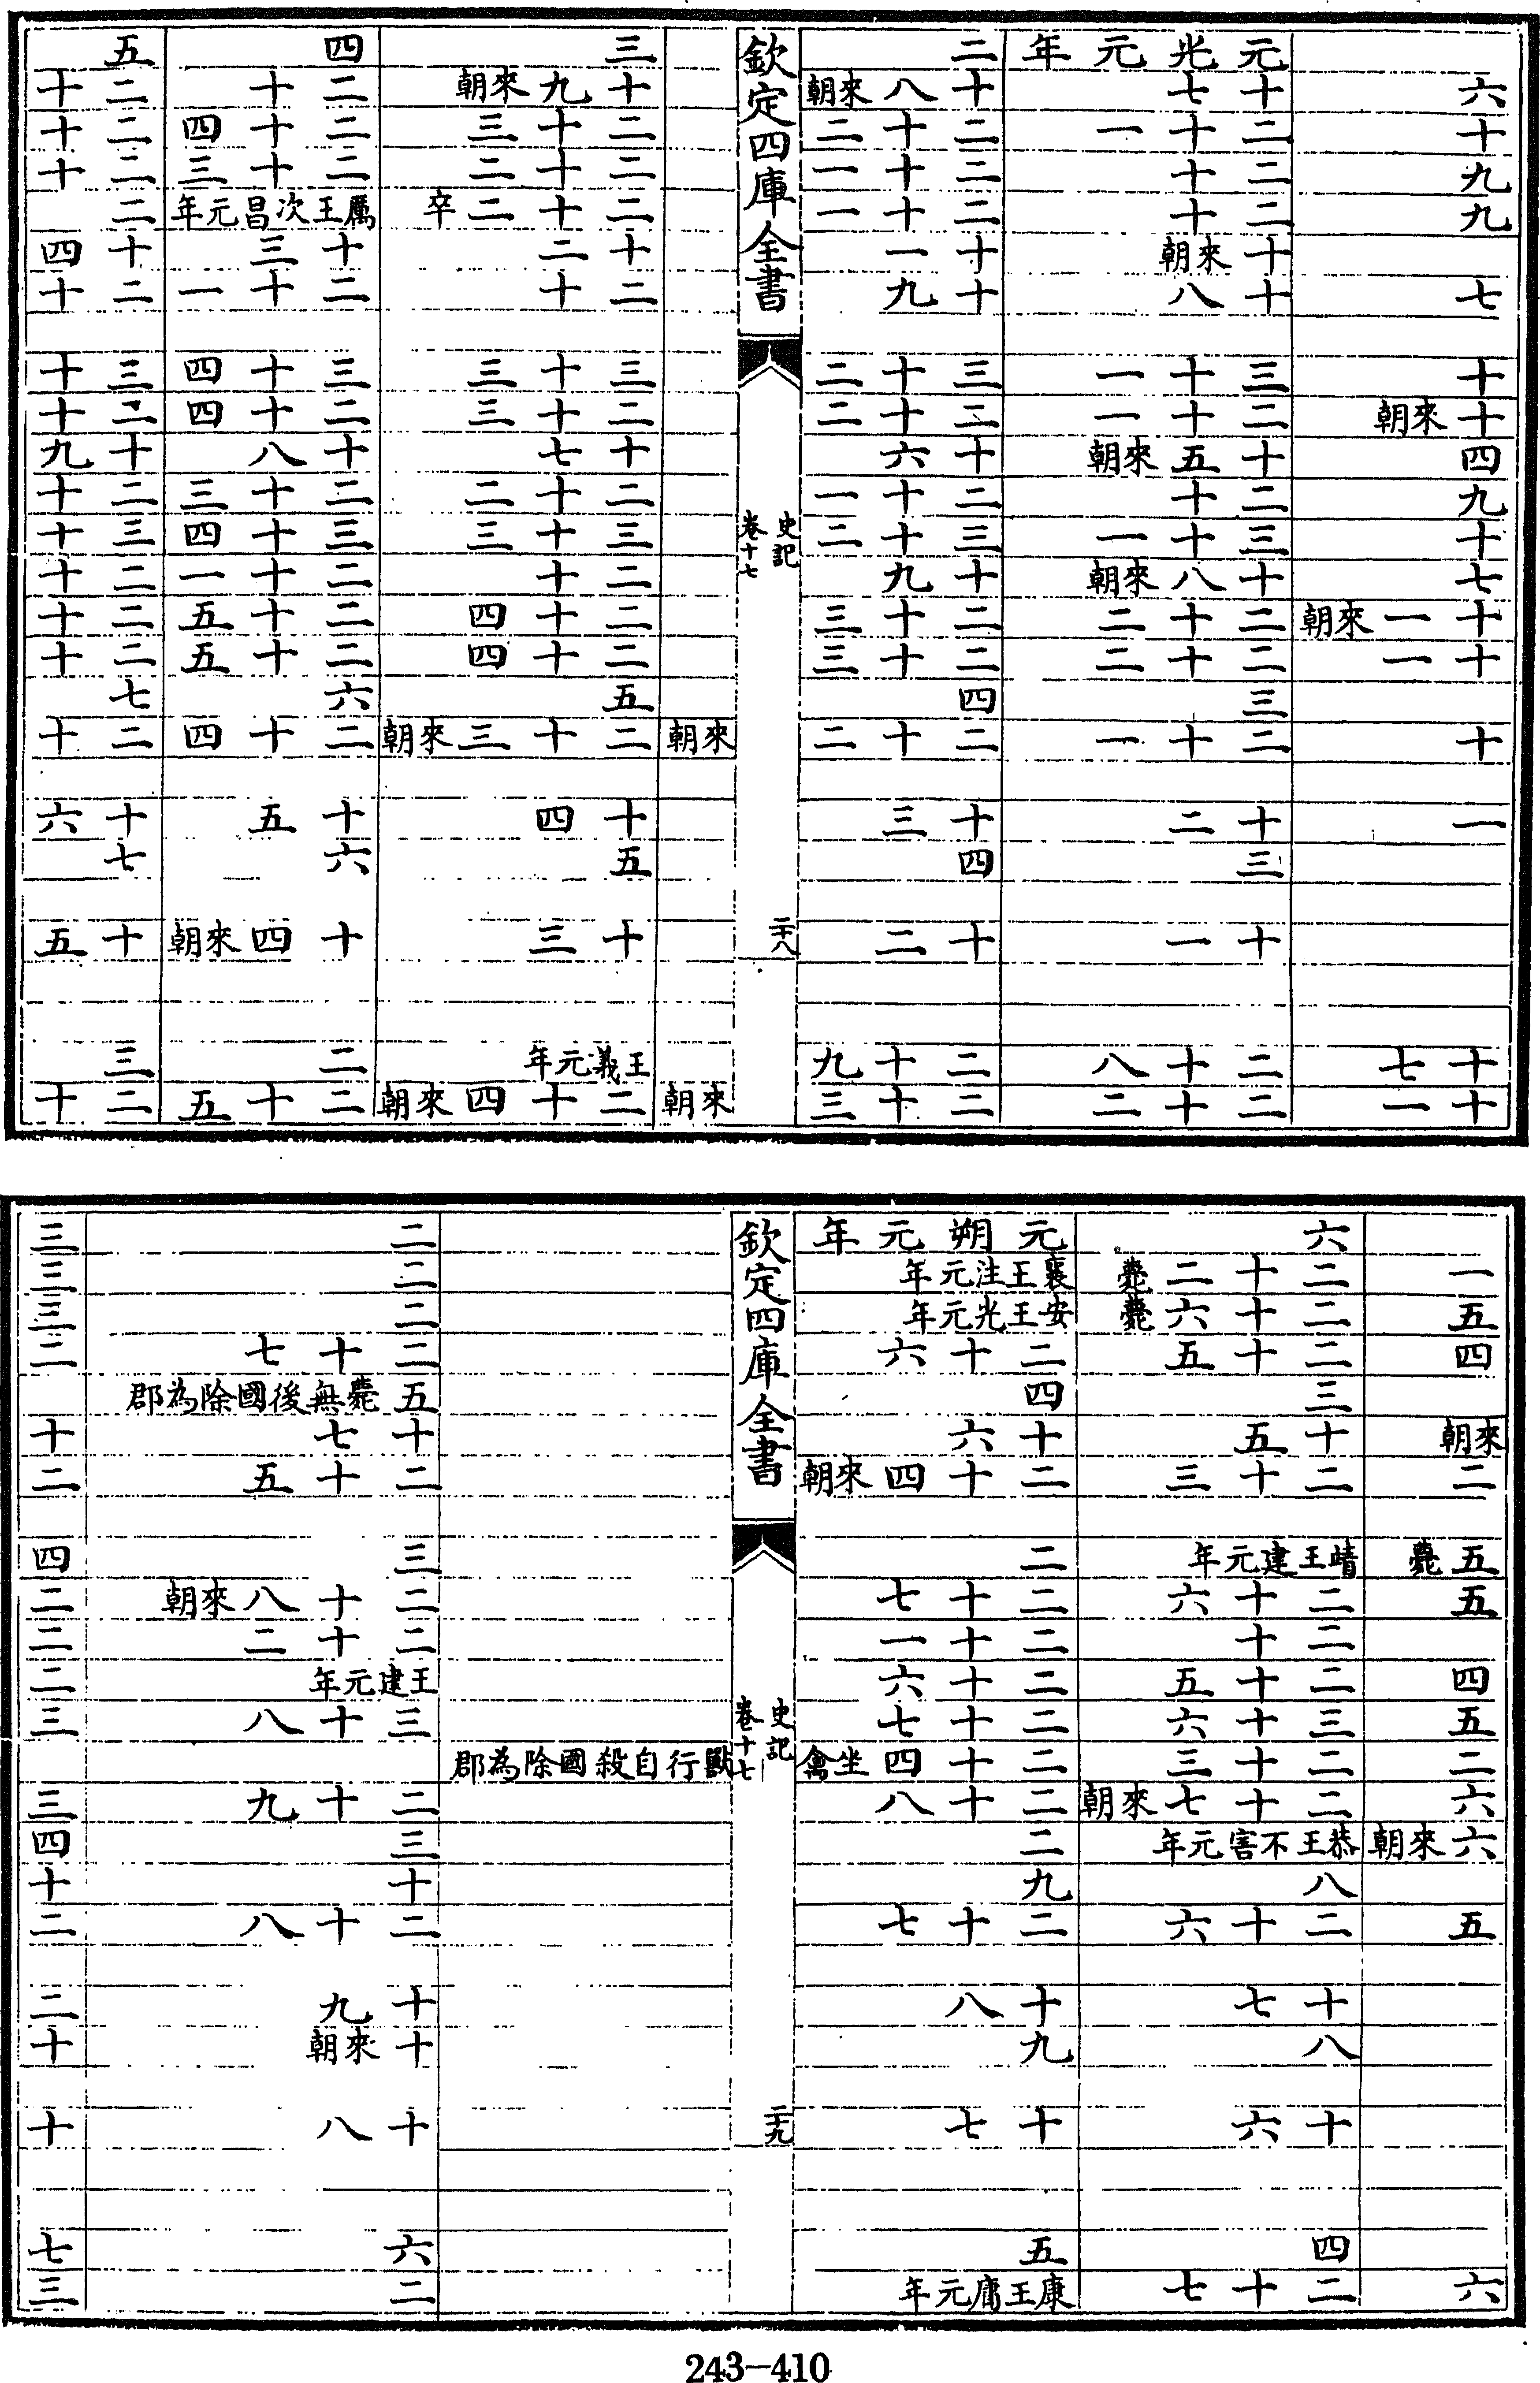 元光元年 二
六 十七 十八來朝
十 二十一 二十二
九 二十 二十一
九 二十 二十一
十來朝 十一
七 十八 十九
十 三十一 三十二
十來朝 二十一 二十二
四 十五來朝 十六
九 二十 二十一
十 三十一 三十二
七 十八來朝 十九
十一來朝 二十二 二十三
十一 二十二 二十三
三 四
十 二十一 二十二
一 十二 十三
三 四
十一 十二
十七 二十八 二十九
十一 二十二 二十三
欽定四庫全書
史記
卷十七
二十八
三 四 五
十九來朝 二十 二十
二十三 二十四 二十
二十二 二十三 二十
二十二卒 厲王次昌元年 二
十二 十三 十四
二十 二十一 二十
三十三 三十四 三十
二十三 二十四 二十
十七 十八 十九
二十二 二十三 二十
三十三 三十四 三十
二十 二十一 二十
二十四 二十五 二十
二十四 二十五 二十
五 六 七
來朝 二十三來朝 二十四 二十
十四 十五 十六
五 六 七
十三 十四來朝 十五
王義元年 二 三
來朝 二十四來朝 二十五 二十
六 元朔元年
一 二十二薨 襄王注元年
五 二十六薨 安王光元年
四 二十五 二十六
三 四
來朝 十五 十六
二 二十三 二十四來朝
五薨 靖王建元年 二
五 二十六 二十七
二十 二十一
四 二十五 二十六
五 三十六 二十七
二 二十三 二十四坐禽
六 二十七來朝 二十八
六來朝 恭王不害元年 二
八 九
五 二十六 二十七
十七 十八
八 九
十六 十七
四 五
六 二十七 康王庸元年
欽定四庫全書
史記
卷十七
二十九
二 三
二 三
二 三
二十七 二
五薨無後國除為郡
十七 十
二十五 二
三 四
二十八來朝 二
二十二 二
王建元年 二
三十八 三
獸行自殺國除為郡
二十九 三
三 四
十 十
二十八 二
十九 二
十來朝 十
十八 十
六 七
二 三
243-410